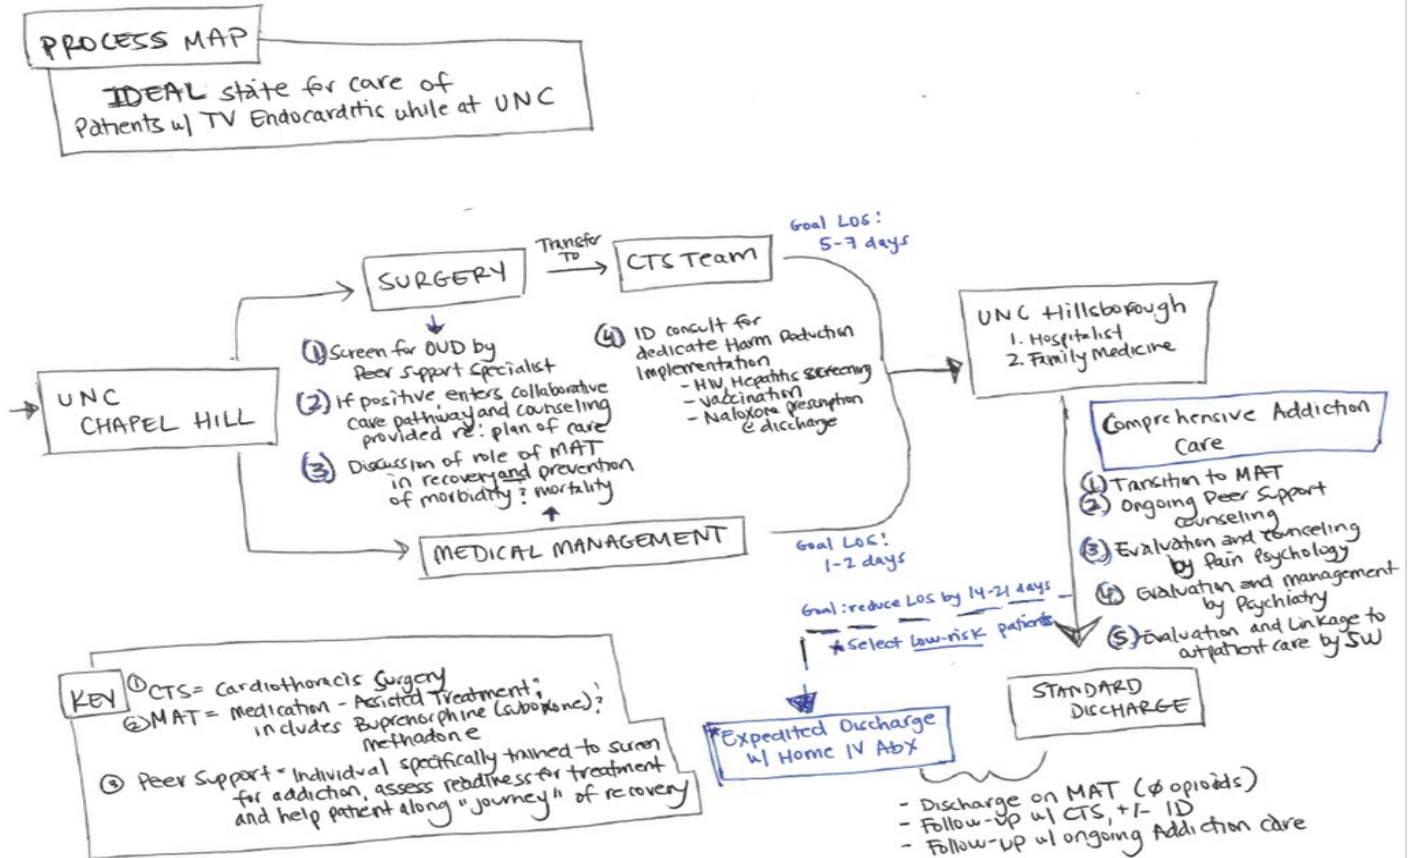 PROCESS MAP
IDEAL state for care of
Patients w/ TV Endocarditis while at UNC
UNC
CHAPEL HILL
SURGERY
Transfer
TO
CTS Team
Goal LOS:
5-7 days
① Screen for OUD by
Peer Support Specialist
② If positive enters collaborative
care pathway and counseling
provided re: plan of care
③ Discussion of role of MAT
in recovery and prevention
of morbidity ? mortality
④ ID consult for
dedicate Harm Reduction
Implementation
- HIV, Hepatitis screening
- Vaccination
- Naloxone prescription
@ discharge
MEDICAL MANAGEMENT
Goal LOS:
1-2 days
UNC Hillsborough
1. Hospitalist
2. Family Medicine
Comprehensive Addiction
Care
① Transition to MAT
② Ongoing Peer Support
counseling
③ Evaluation and counceling
by Pain Psychology
④ Evaluation and management
by Psychiatry
⑤ Evaluation and Linkage to
outpatient care by SW
Goal: reduce LOS by 14-21 days
*Select low-risk patients
*Expedited Discharge
w/ Home IV Abx
STANDARD
DISCHARGE
- Discharge on MAT (∅ opioids)
- Follow-up w/ CTS, +/- ID
- Follow-up w/ ongoing Addiction care
KEY
① CTS = Cardiothoracis Surgery
② MAT = Medication - Assisted Treatment;
includes Buprenorphine (suboxone) ?
methadone
③ Peer Support = Individual specifically trained to screen
for addiction, assess readiness for treatment
and help patient along "journey" of recovery